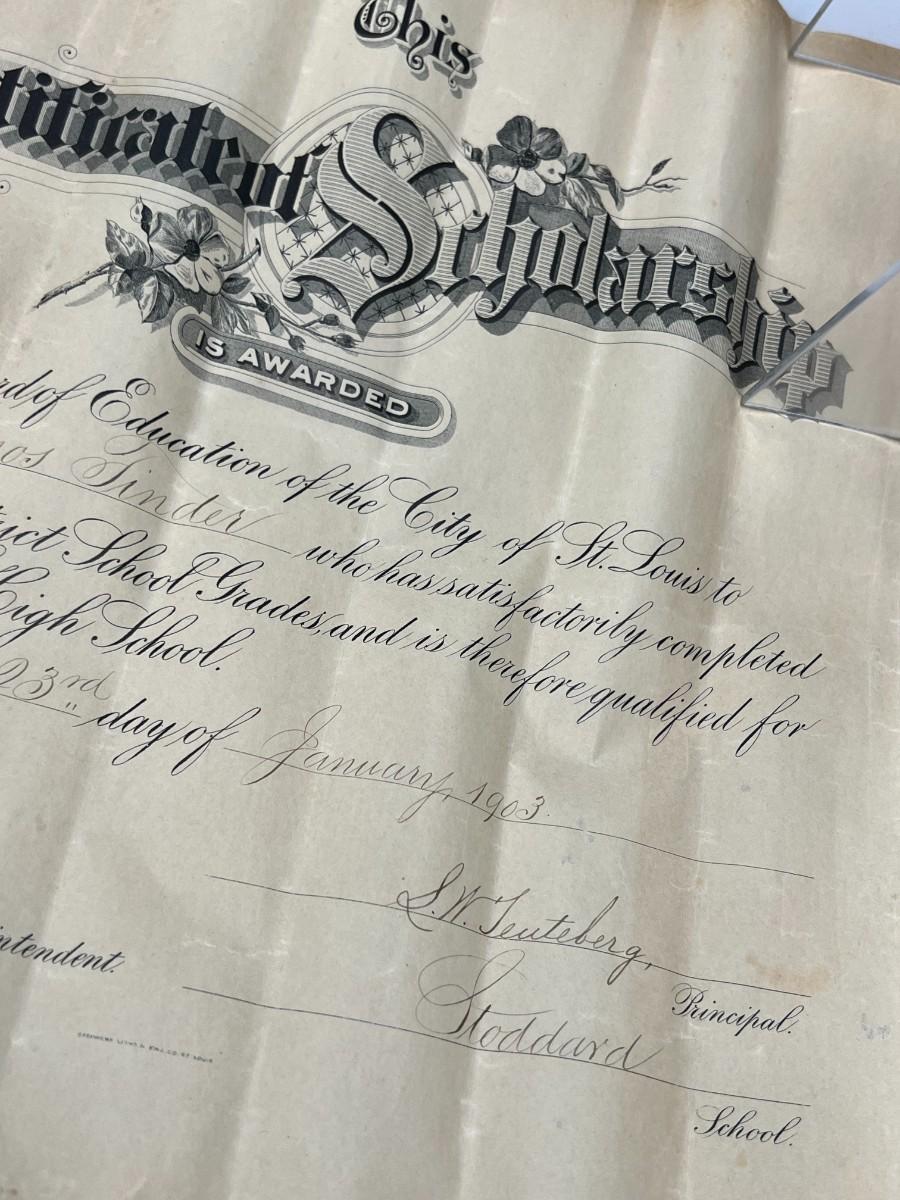 This
tificate of Scholarship
IS AWARDED
rd of Education of the City of St. Louis to
nos Tinder who has satisfactorily completed
rict School Grades, and is therefore qualified for
High School.
23rd day of January, 1903.
L.W. Teuteberg,
Principal.
ntendent.
Stoddard
School.